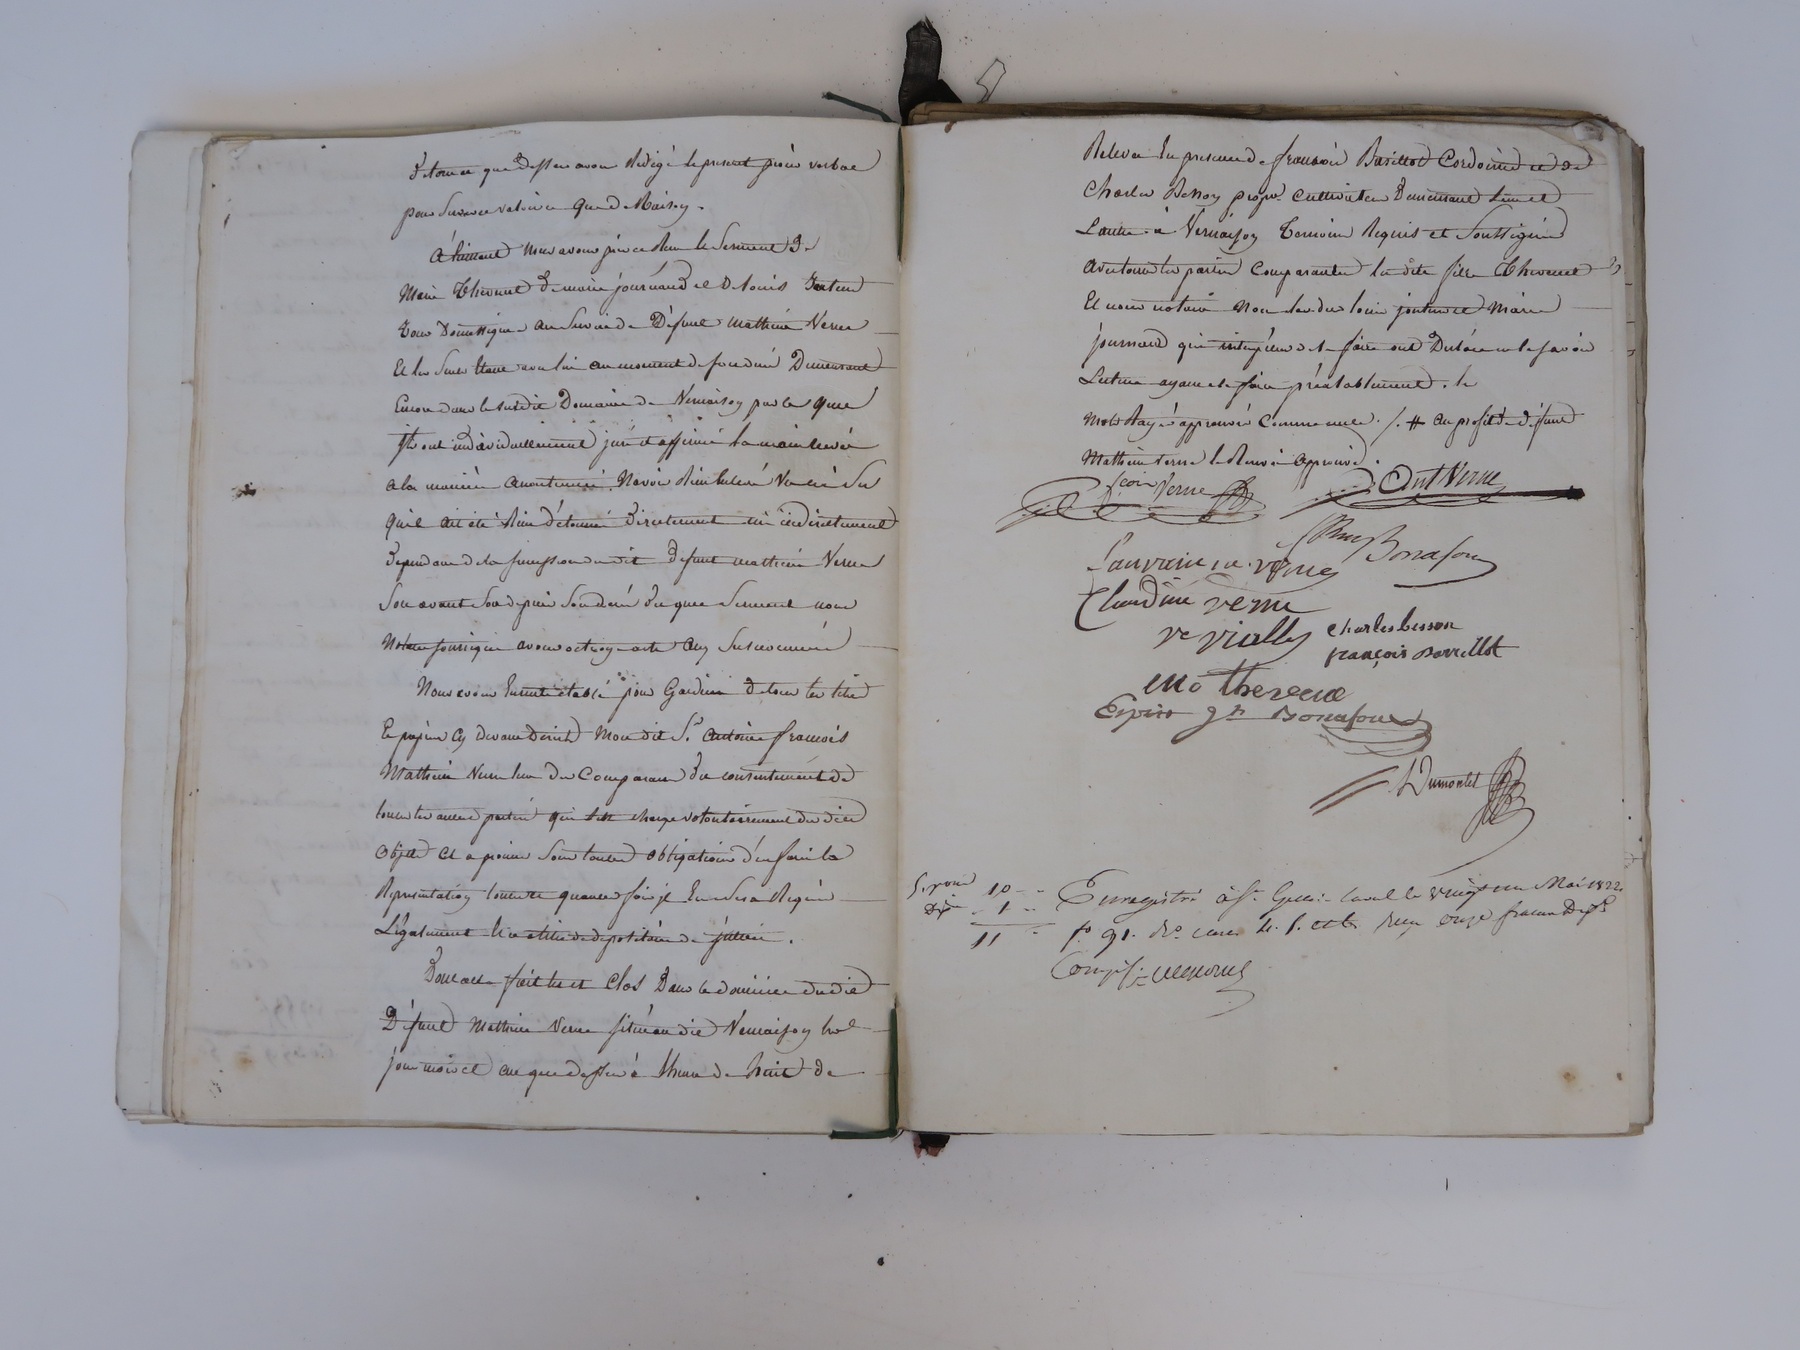 De tout ce que dessus avons rédigé le present procès verbal
pour servir et valoir ce que de Raison.
A l'instant nous avons pris et Reçu le serment de
Marie Thevenet Domicile journaud et de Louis
tous Domestiques au service de Défunt Mathieu Verne
Et les seuls avec lui au moment de son décès Demeurant
Encore dans le susdit Domaine de Vernaison par le quel
Ils ont individuellement juré et affirmé la main levée
a la manière accoutumée N'avoir Rien enlevé Ni vu Ni Su
qu'il ait été Rien détourné Directement ni indirectement
Dependant de la succession du dit défunt mathieu Verne
Soit avant Soit depuis Son décés Du quel Serment nous
Notaire soussigné avons octroyé acte aux Susnommés
Nous avons Ensuite établi pour Gardien de tous les titres
Et papiers Cy devant Décrits Mon dit Sr. Antoine francois
Mathieu Verne l'un des Comparants Du consentement de
toutes les autres parties qui s'est chargé volontairement des dits
Objets et a promis Sous toutes obligations d'en faire la
Representation toutes et quantes fois il En Sera Requis
Légalement Et a titre de depositaire de justice.
Dont acte fait lu et Clos Dans le domicile du dit
Défunt Mathieu Verne situé au dit Vernaison les
jour mois et an que dessus à l'heure de huit de
Relevée En presence de francois Barillot Cordonnier et de
Charles Besson propre. Cultivateur Demeurant l'un et
L'autre à Vernaison Temoins Requis et Soussignés
Avec toutes les parties Comparantes la dite fille Thevenet
Et nous notaire Non les dits Louis et Marie
journaud qui interpelés de le faire ont Déclaré ne le savoir
Lecture ayant été faite préalablement. le
Mots Rayé approuvé Comme nul ./. # au profit de défunt
Mathieu Verne le Renvoi approuvé.
fçois Verne Ant Verne
Bonafous
verne
Claudine verne
ve vialley Charles besson
françois Barrillot
thevenet
Bonafous
Dumontet
10
Enregistré à St. Genis Laval le vingt un Mai 1822.
1
11 fo. 91. Ro. cases 4. 5. et 6. Reçu onze francs Dixe